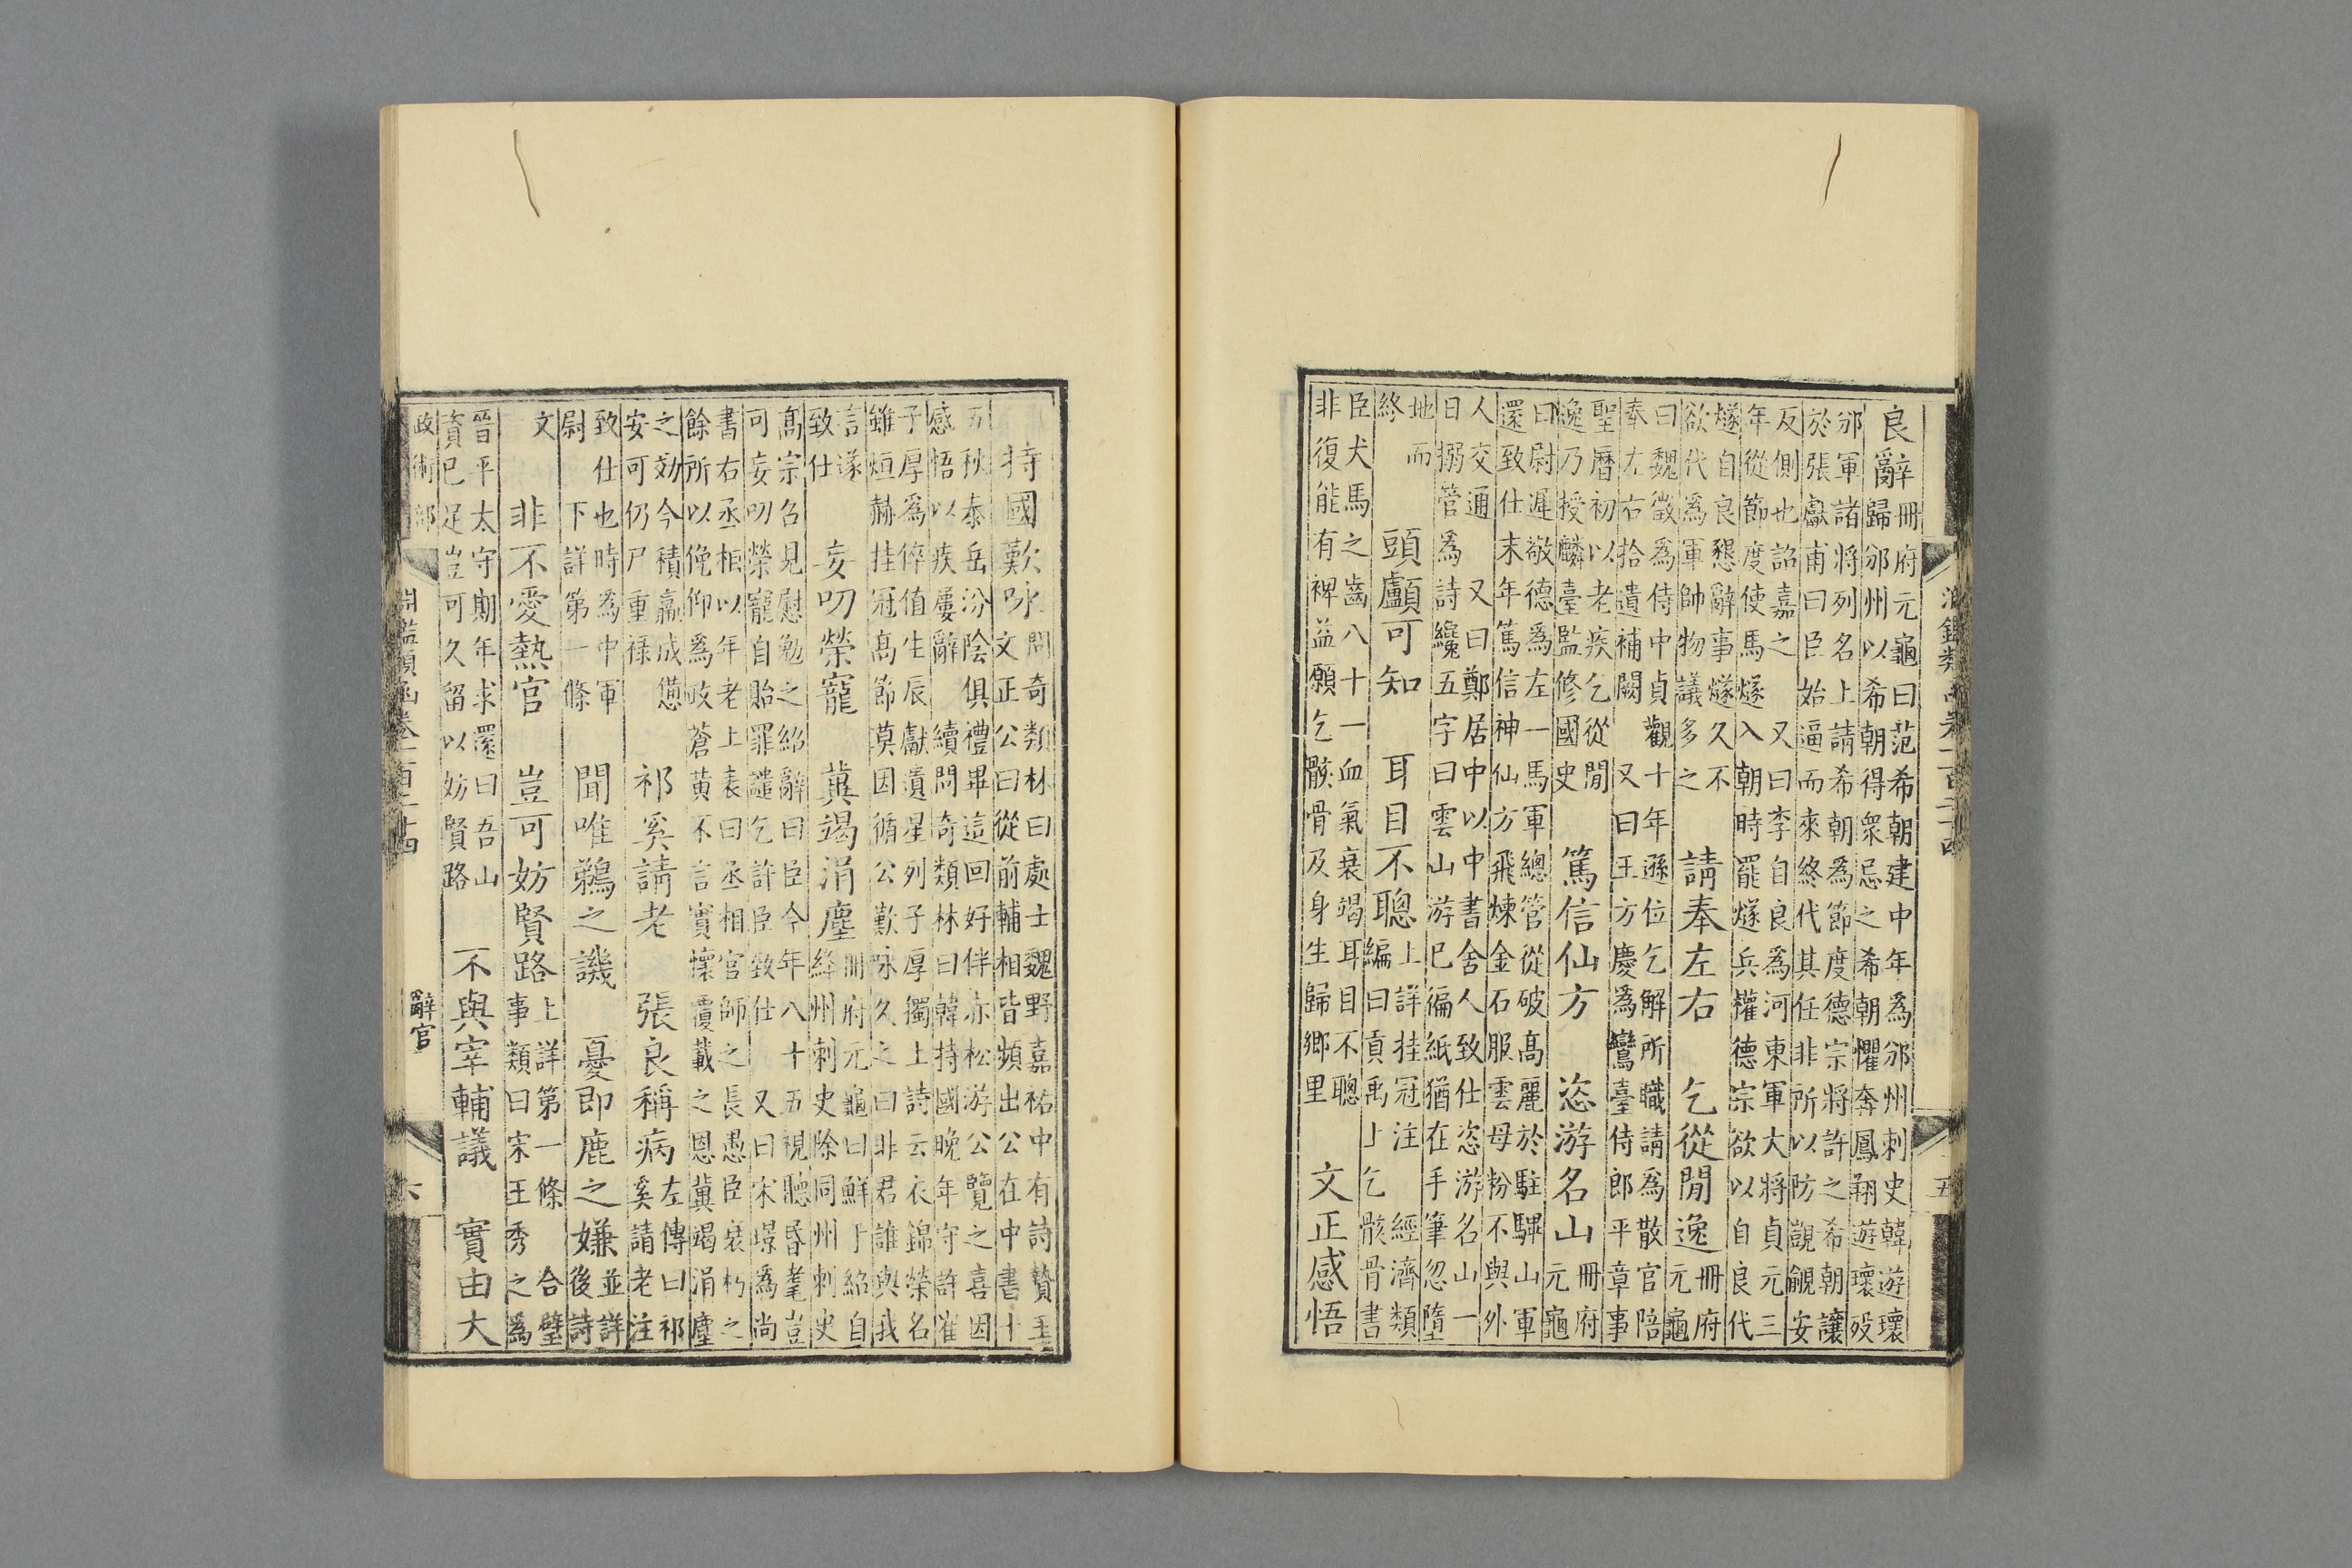 良辭
冊府元龜曰范希朝建中年為邠州刺史韓遊瓌
歸邠州以希朝得衆忌之希朝懼奔鳳翔遊瓌歿
邠軍諸將列名上請希朝為節度德宗將許之希朝讓
於張獻甫曰臣始逼而來終代其任非所以防覬覦安
反側也詔嘉之 又曰李自良為河東軍大將貞元三
年從節度使馬燧入朝時罷燧兵權德宗欲以自良代
燧自良懇辭事燧久不
欲代為軍帥物議多之
請奉左右 乞從閒逸
冊府
元龜
曰魏徵為侍中貞觀十年遜位乞解所職請為散官陪
奉左右拾遺補闕 又曰王方慶為鸞臺侍郎平章事
聖曆初以老疾乞從閒
逸乃授麟臺監修國史
篤信仙方 恣游名山
冊府
元龜
曰尉遲敬德為左一馬軍總管從破高麗於駐驆山軍
還致仕末年篤信神仙方飛煉金石服雲母粉不與外
人交通 又曰鄭居中以中書舍人致仕恣游名山一
日搦管為詩纔五字曰雲山游已徧紙猶在手筆忽墮
地而
終
頭顱可知 耳目不聰
上詳挂冠注 經濟類
編曰貢禹上乞骸骨書
臣犬馬之齒八十一血氣衰竭耳目不聰
非復能有裨益願乞骸骨及身生歸鄉里
文正感悟
淵鑑類函卷一百二十四 五
持國歎咏
問奇類林曰處士魏野嘉祐中有詩贄王
文正公曰從前輔相皆頻出公在中書十
五秋泰岳汾陰俱禮畢這回好伴赤松游公覽之喜因
感悟以疾屢辭 續問奇類林曰韓持國晚年守許崔
子厚為倅值生辰獻遺星列子厚獨上詩云衣錦榮名
雖烜赫挂冠高節莫因循公歎咏久之曰非君誰與我
言遂
致仕
妄叨榮寵 冀竭涓塵
冊府元龜曰鮮于紹自
絳州刺史除同州刺史
高宗召見慰勉之紹辭曰臣今年八十五視聽昏耄豈
可妄叨榮寵自貽罪譴乞許臣致仕 又曰宋璟為尚
書右丞相以年老上表曰丞相官師之長愚臣衰朽之
餘所以俛仰為岐蒼黃不言實懷覆載之恩冀竭涓塵
之効今積羸成憊
安可仍尸重祿
祁奚請老 張良稱病
左傳曰祁
奚請老注
致仕也時為中軍
尉 下詳第一條
聞唯鵜之譏 憂即鹿之嫌
並詳
後詩
文
非不愛熱官 豈可妨賢路
上詳第一條 合璧
事類曰宋王秀之為
晉平太守期年求還曰吾山
資已足豈可久留以妨賢路
不與宰輔議 實由大
政術部 淵鑑類函卷一百二十四 辭官 六